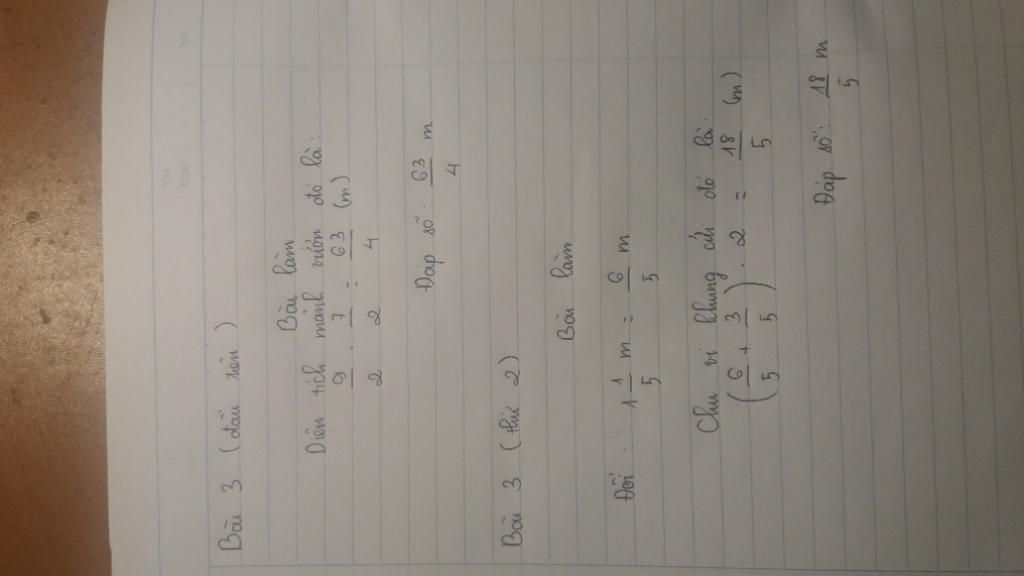 Bài 3 (đầu tiên)
Bài làm
Diện tích mảnh vườn đó là:
9/2 . 7/2 = 63/4 (m)
Đáp số: 63/4 m
Bài 3 (thứ 2)
Bài làm
Đổi: 1 1/5 m = 6/5 m
Chu vi khung ảnh đó là:
(6/5 + 3/5) . 2 = 18/5 (m)
Đáp số: 18/5 m